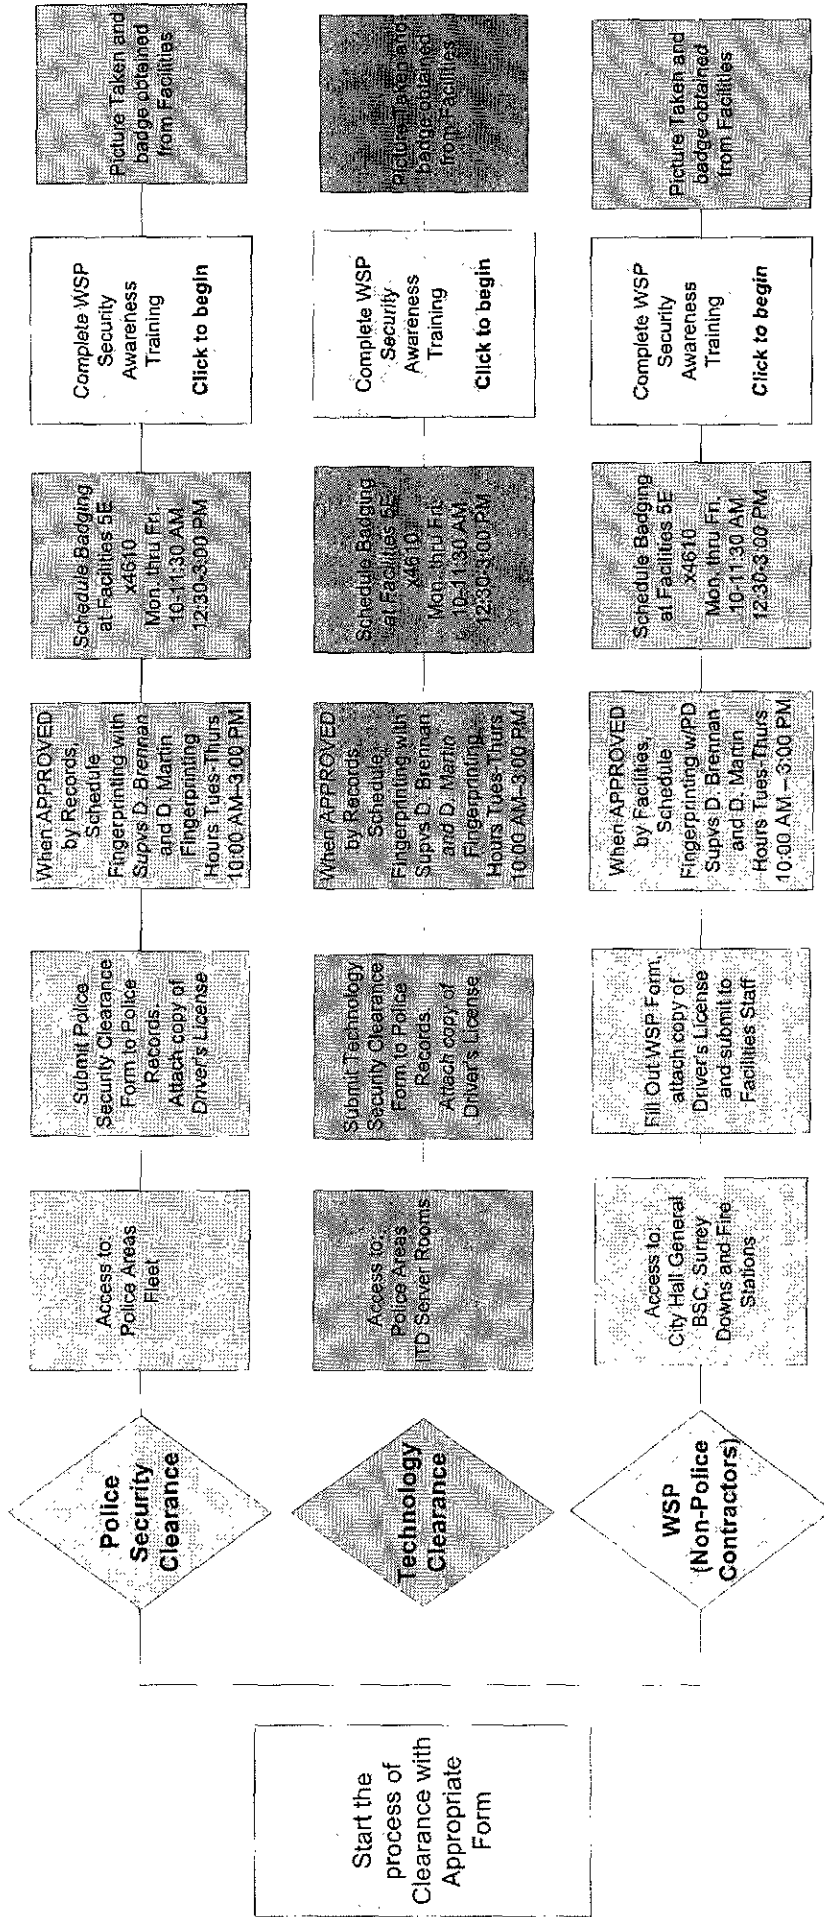 Start the
process of
Clearance with
Appropriate
Form
Police
Security
Clearance
Access to:
Police Areas
Fleet
Submit Police
Security Clearance
Form to Police
Records.
Attach copy of
Driver's License
When APPROVED
by Records,
Schedule
Fingerprinting with
Supvs D. Brennan
and D. Martin
Fingerprinting
Hours Tues-Thurs
10:00 AM–3:00 PM
Schedule Badging
at Facilities 5E
x4610
Mon. thru Fri.
10-11:30 AM
12:30-3:00 PM
Complete WSP
Security
Awareness
Training
Click to begin
Picture Taken and
badge obtained
from Facilities
Technology
Clearance
Access to:
Police Areas
ITD Server Rooms
Submit Technology
Security Clearance
Form to Police
Records.
Attach copy of
Driver's License
When APPROVED
by Records,
Schedule
Fingerprinting with
Supvs D. Brennan
and D. Martin
Fingerprinting
Hours Tues-Thurs
10:00 AM–3:00 PM
Schedule Badging
at Facilities 5E
x4610
Mon. thru Fri.
10-11:30 AM
12:30-3:00 PM
Complete WSP
Security
Awareness
Training
Click to begin
Picture Taken and
badge obtained
from Facilities
WSP
(Non-Police
Contractors)
Access to:
City Hall General
BSC, Surrey
Downs and Fire
Stations
Fill Out WSP Form,
attach copy of
Driver's License
and submit to
Facilities Staff
When APPROVED
by Facilities,
Schedule
Fingerprinting w/PD
Supvs D. Brennan
and D. Martin
Hours Tues-Thurs
10:00 AM – 3:00 PM
Schedule Badging
at Facilities 5E
x4610
Mon. thru Fri.
10-11:30 AM
12:30-3:00 PM
Complete WSP
Security
Awareness
Training
Click to begin
Picture Taken and
badge obtained
from Facilities